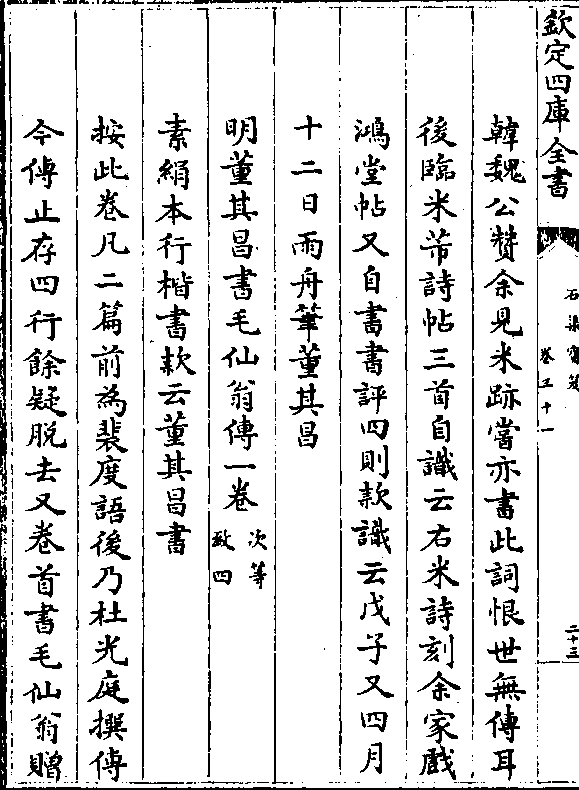 欽定四庫全書
石渠寶笈
卷三十一
二十三
韓魏公贊余見米跡嘗亦書此詞恨世無傳耳
後臨米芾詩帖三首自識云右米詩刻余家戲
鴻堂帖又自書書評四則款識云戊子又四月
十二日雨舟筆董其昌
明董其昌書毛仙翁傳一卷
次等
致四
素絹本行楷書款云董其昌書
按此卷凡二篇前為裴度語後乃杜光庭撰傳
今傳止存四行餘疑脫去又卷首書毛仙翁贈